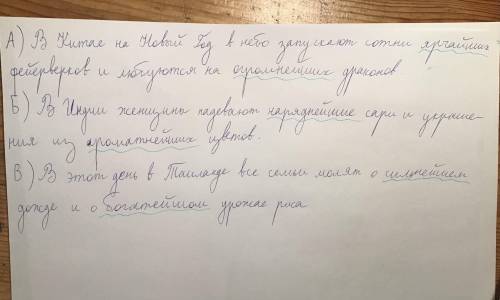 А) В Китае на Новый Год в небо запускают сотни ярчайших
фейерверков и любуются на огромнейших драконов
Б) В Индии женщины надевают наряднейшие сари и украше-
ния из ароматнейших цветов.
В) В этот день в Таиланде все семьи молят о сильнейшем
дожде и о богатейшом урожае риса